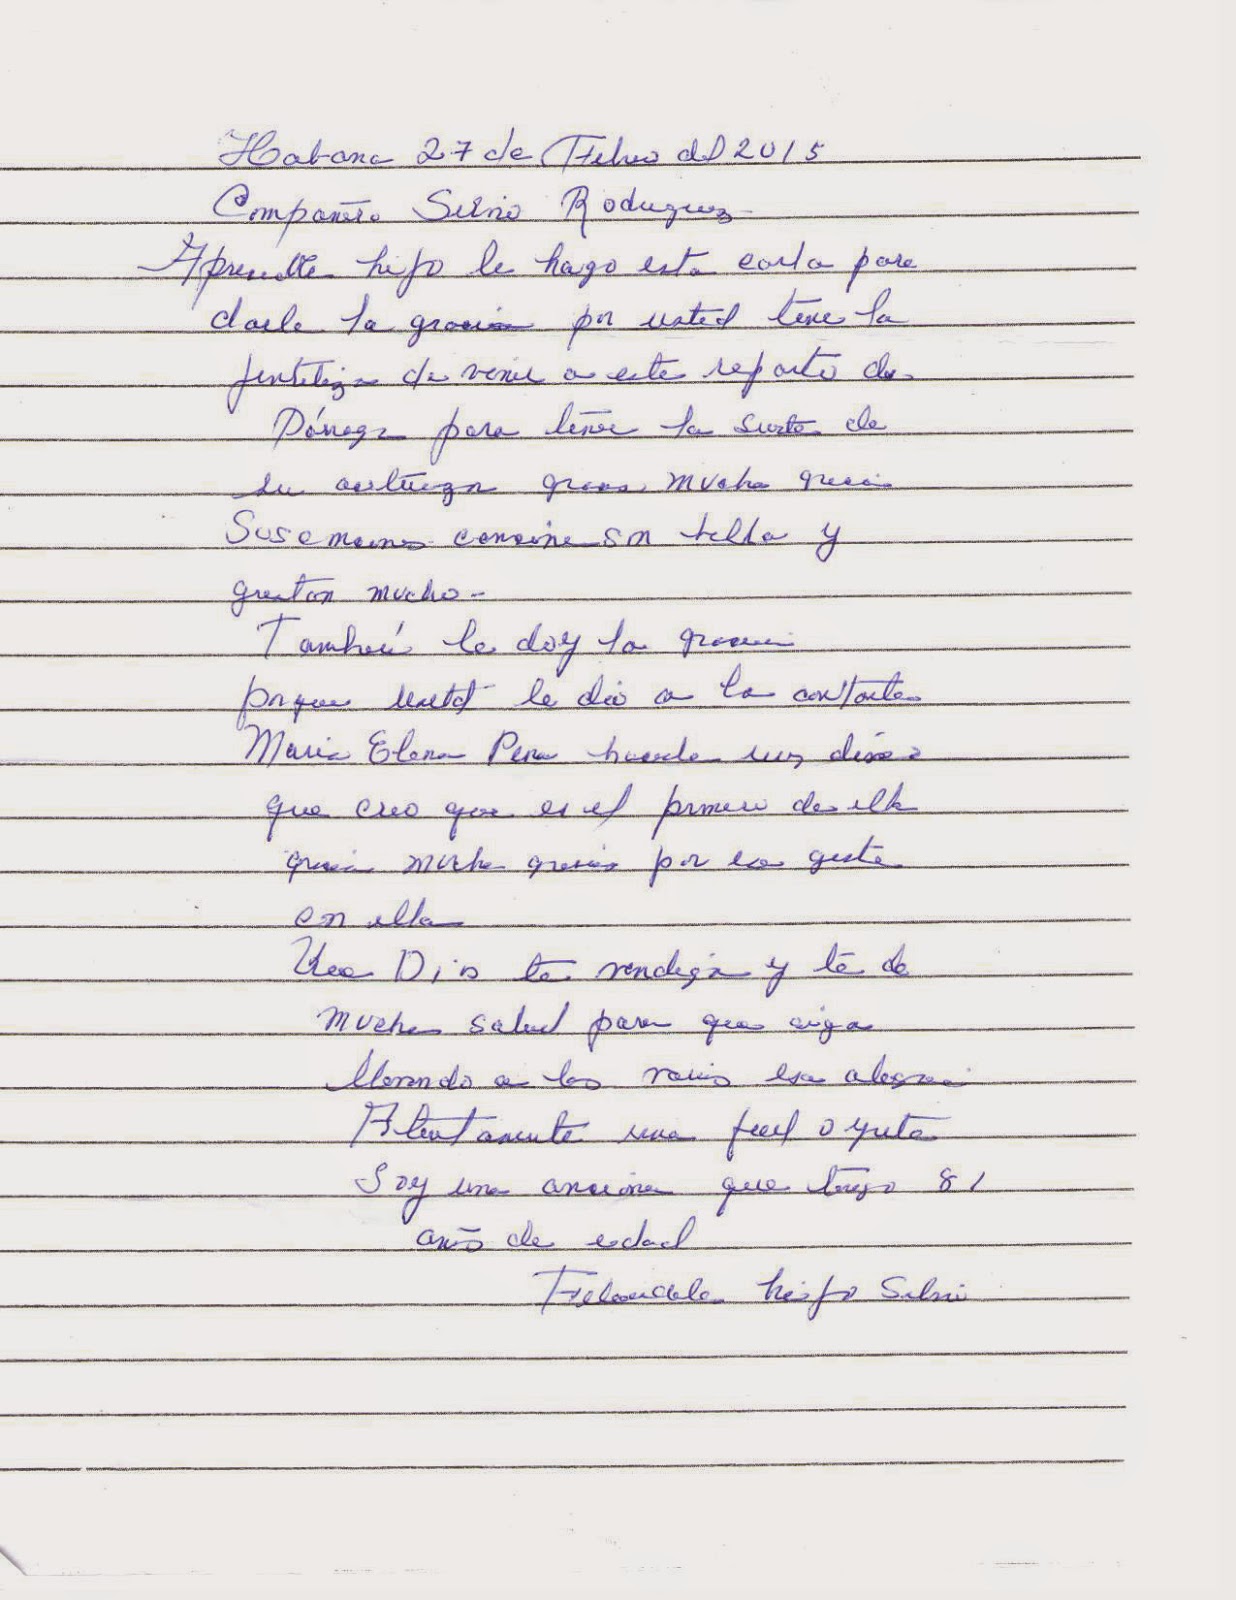 Habana 27 de Febreo del 2015
Compañero Silvio Rodriguez
hijo le hago esta carta para
darle la gracia por usted tene la
de venir a este reparto de
Párraga para tener la suerte de
su gracia mucha gracia
Sus cancione son bella y
gustan mucho-
También le doy la gracia
porque usted le dio a la cantante
Maria Elena Pena hacerle un disco
que creo que es el primero de ella
gracia mucha gracia por ese gesto
con ella
Que Dios te vendiga y te de
mucha salud para que siga
llevando a los esa alegria
Atentamente una fiel oyente
Soy una anciana que tengo 81
años de edad
hijo Silvio